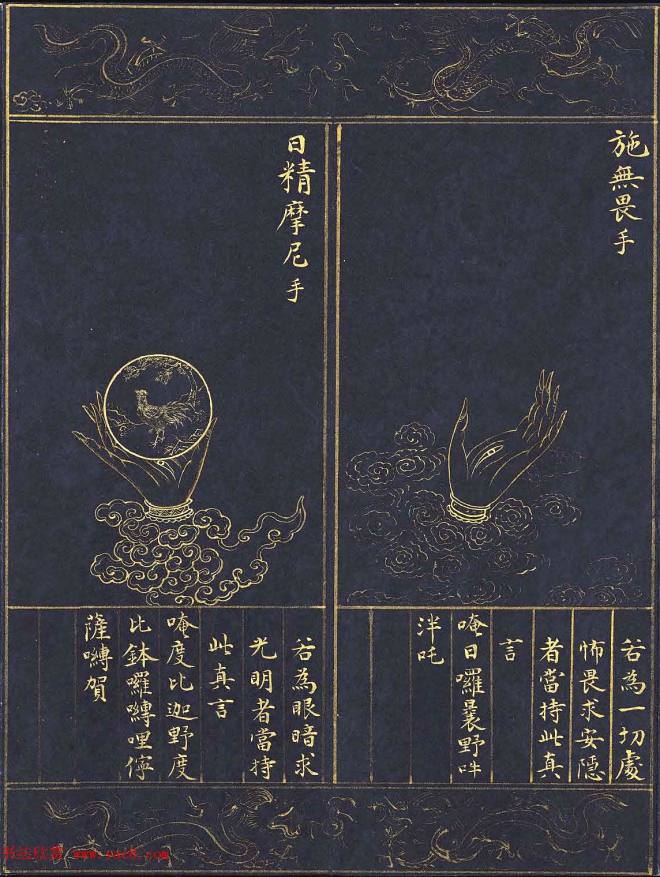 施無畏手
若為一切處
怖畏求安隱
者當持此真
言
唵日囉曩野吽
泮吒
日精摩尼手
若為眼暗求
光明者當持
此真言
唵度比迦野度
比鉢囉嚩哩儜
薩嚩賀